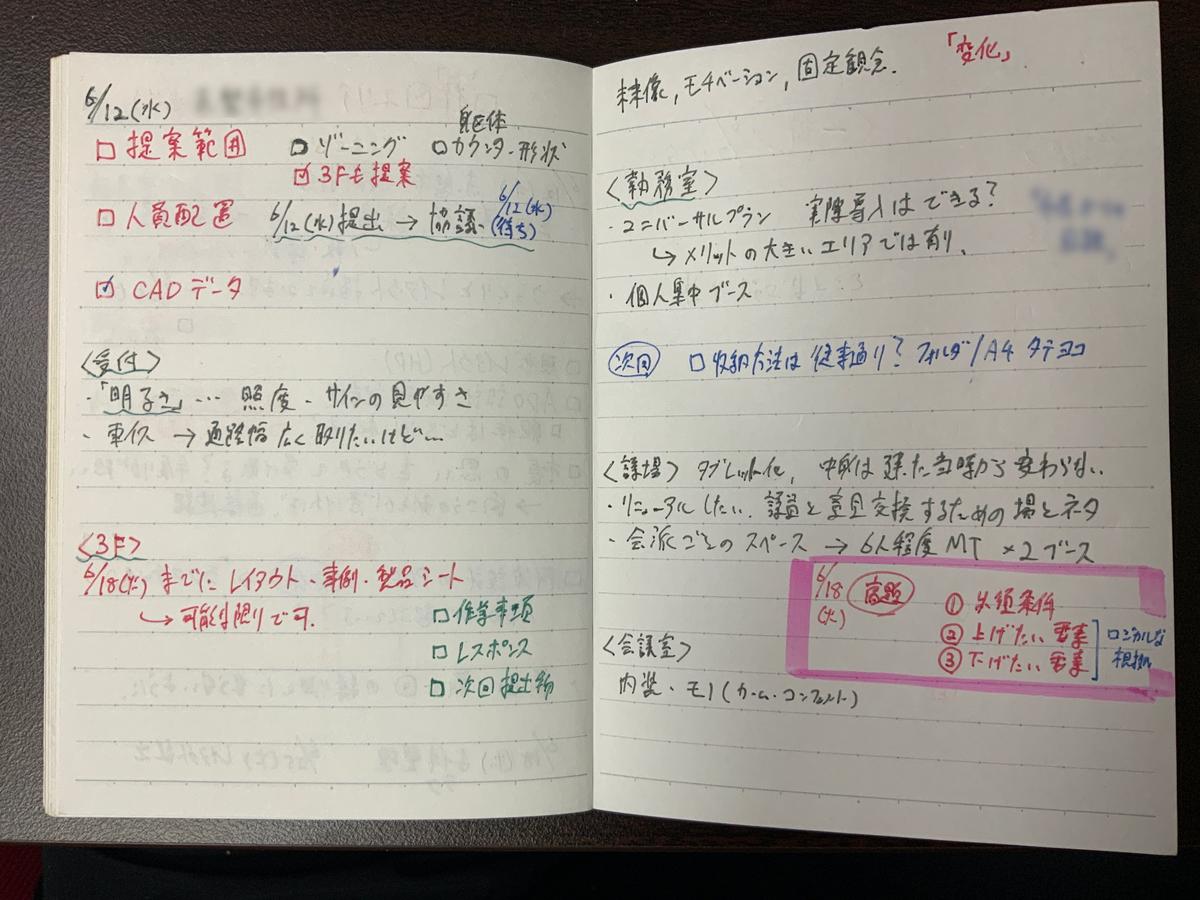 6/12(水)
躯体
□ 提案範囲 □ ゾーニング □ カウンター形状
☑ 3Fも提案
□ 人員配置 6/12(水)提出 → 協議 6/12(水)(待ち)
☑ CADデータ
<受付>
・「明るさ」… 照度・サインの見やすさ
・車イス → 通路幅広く取りたいけど…
<3F>
6/18(火)までに レイアウト・事例・製品シート
↳ 可能な限りで可.
□ 作業事項
□ レスポンス
□ 次回提出物
未来像, モチベーション, 固定観念. 「変化」
<執務室>
・ユニバーサルプラン 実際導入はできる?
↳ メリットの大きいエリアでは有り.
・個人集中ブース
次回 □ 収納方法は従来通り? フォルダ/A4 タテヨコ
<議場> タブレット化, 中身は建った当時から変わらない.
・リニューアルしたい. 議員と意見交換するための場とネタ
・会派ごとのスペース → 6人程度MT ×2ブース
6/18(火) 宿題 ① 必須条件
② 上げたい要素
③ 下げたい要素
ロジカルな根拠
<会議室>
内装・モノ(カーム・コンフォート)